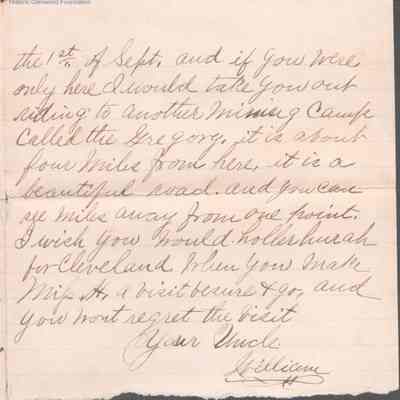 Historic Glenwood Foundation
the 1st of Sept. and if you were
only here I would take you out
riding to another Mining Camp
Called the Gregory. it is about
four Miles from here, it is a
beautiful road. and you can
see miles away from one point.
I wish you would holler hurah
for Cleveland When you make
Miss H, a visit besure & go, and
you wont regret the visit
Your Uncle
William